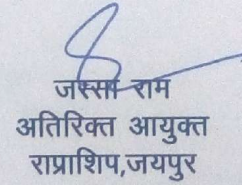 जस्सा राम
अतिरिक्त आयुक्त
राप्राशिप,जयपुर